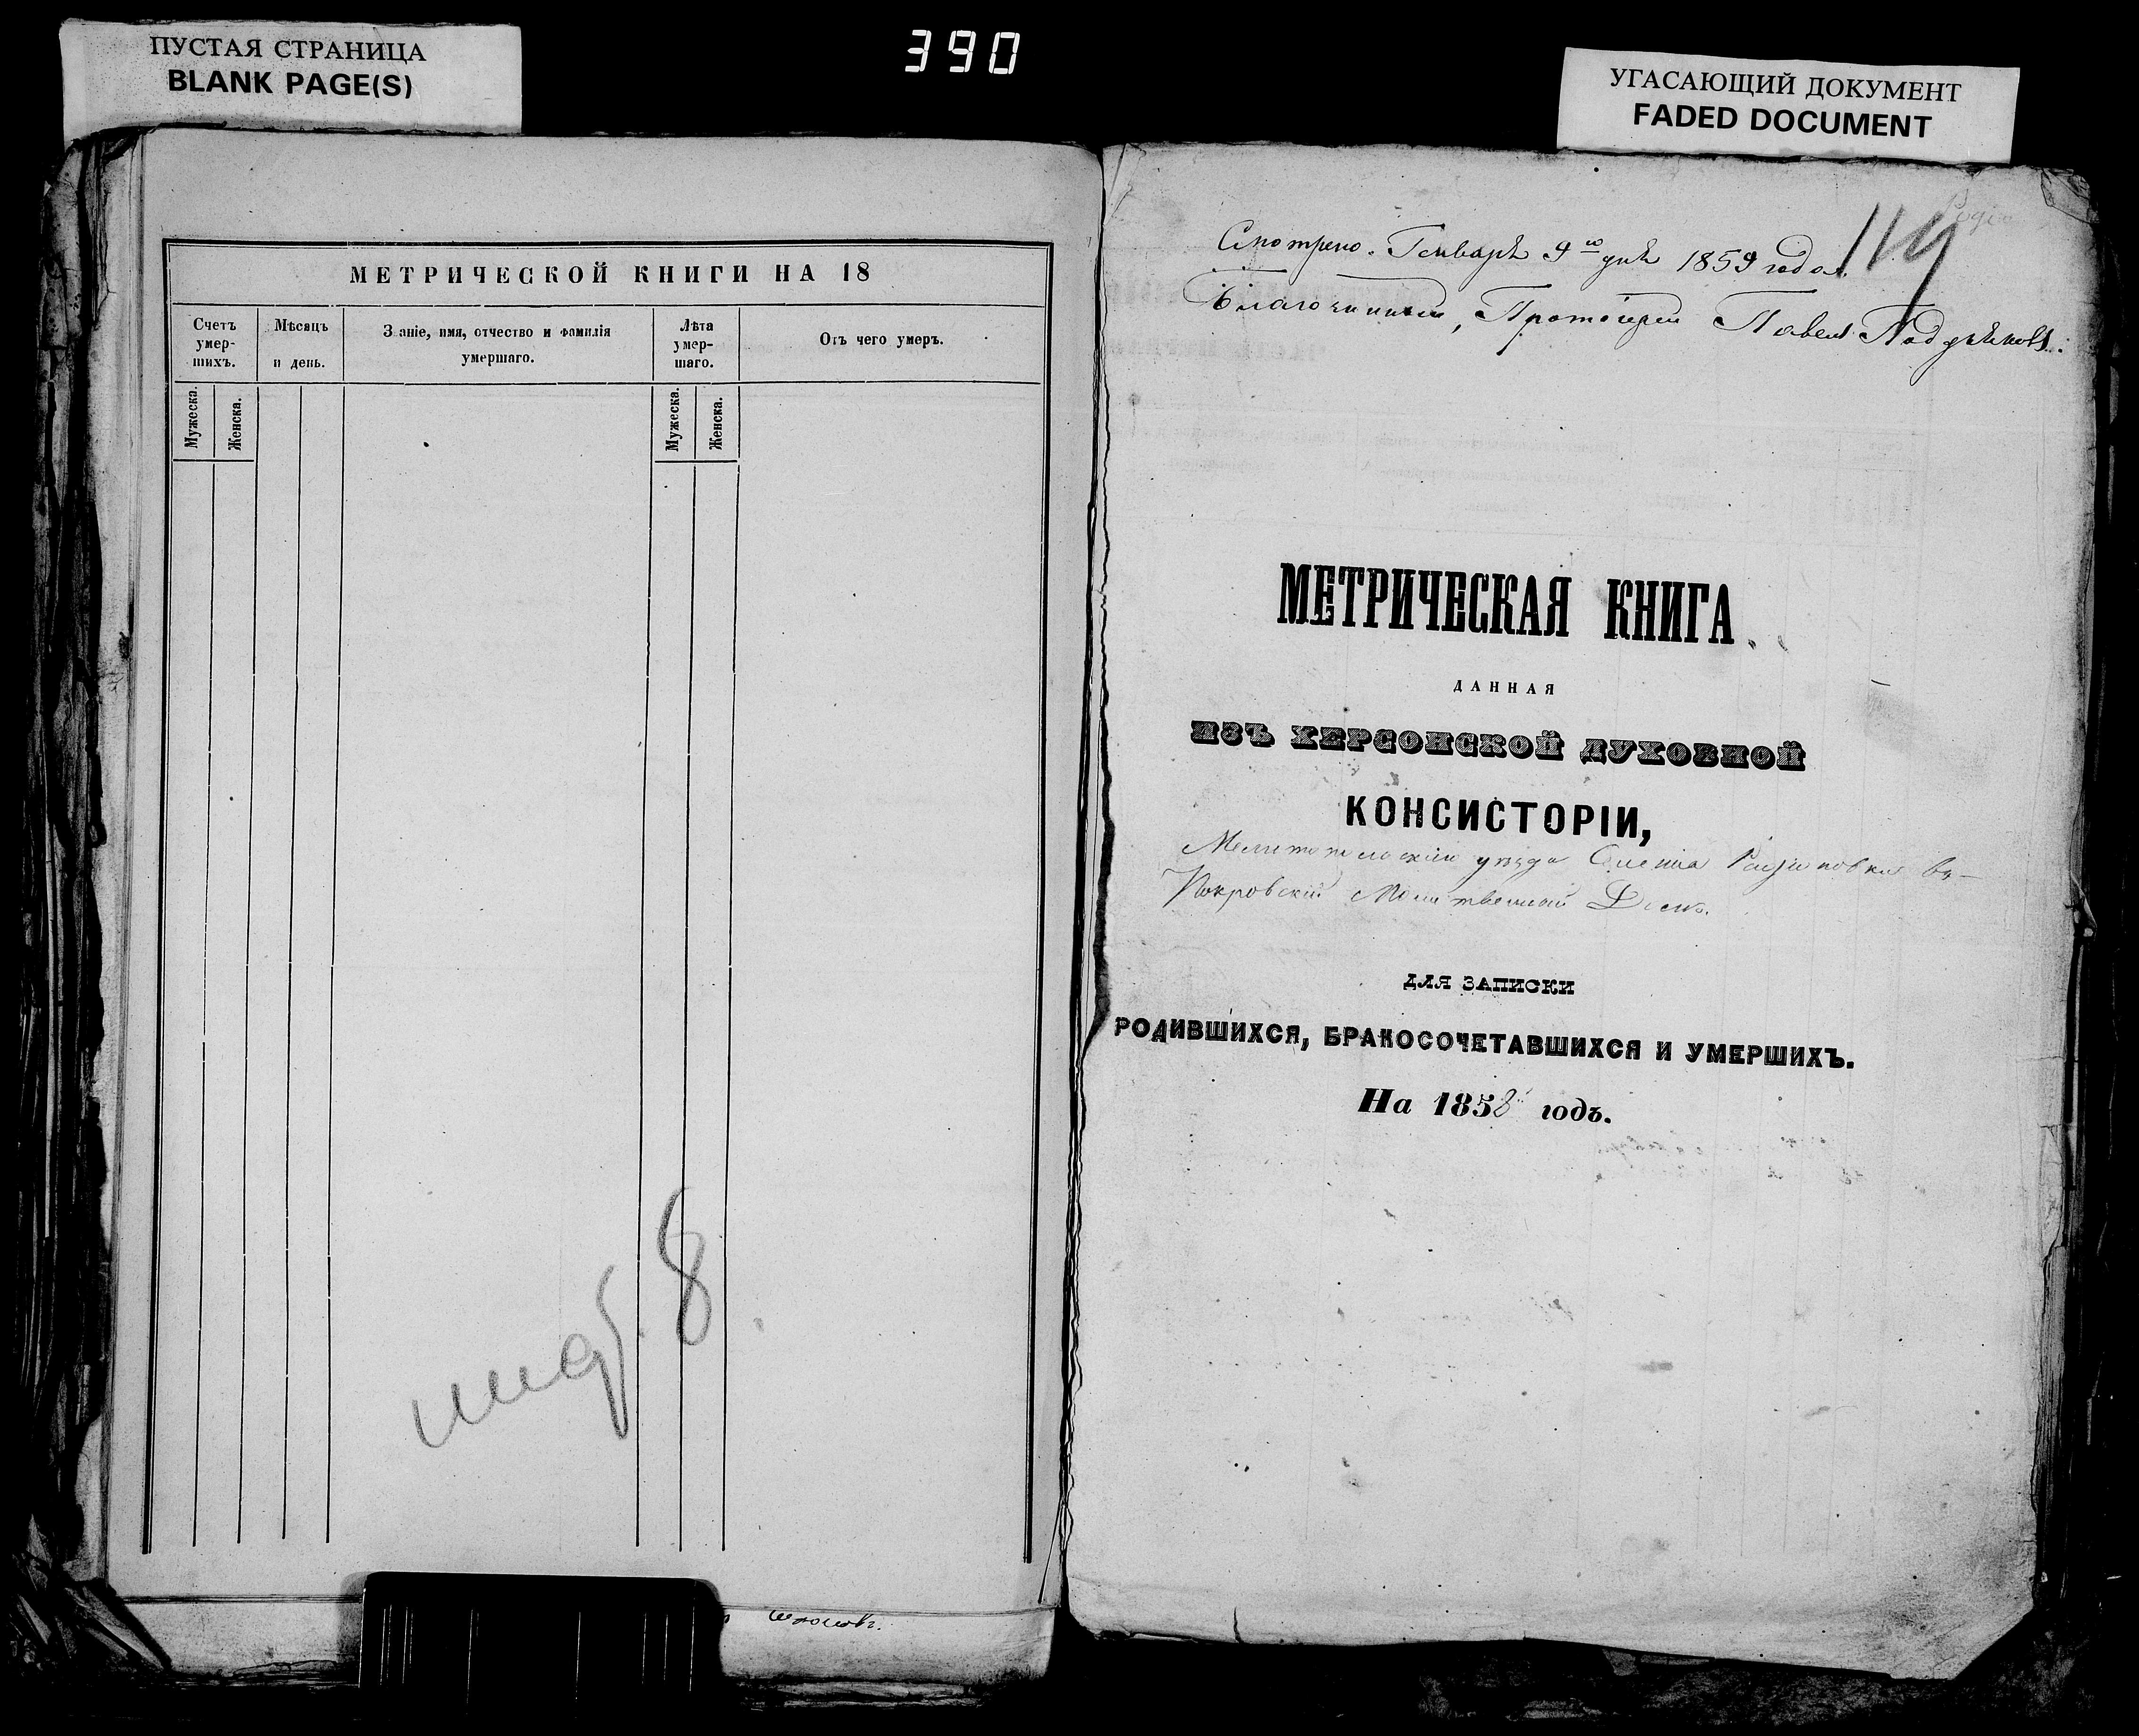 ПУСТАЯ СТРАНИЦА
BLANK PAGE(S)
390
УГАСАЮЩИЙ ДОКУМЕНТ
FADED DOCUMENT
МЕТРИЧЕСКОЙ КНИГИ НА 18
Счетъ умер-шихъ.
Мѣсяцъ и день.
Званіе, имя, отчество и фамилія умершаго.
Лѣта умер-шаго.
Отъ чего умеръ.
Мужеска.
Женска.
Мужеска.
Женска.
8
119
Смотрено. Генваря 9го дня 1859 года
Благочинный, Протоіерей Павелъ
МЕТРИЧЕСКАЯ КНИГА
ДАННАЯ
ИЗЪ ХЕРСОНСКОЙ ДУХОВНОЙ
КОНСИСТОРІИ,
Мелитопольскаго уѣзда Селенія Радивоновки въ
Покровскій Молитвенный Домъ.
ДЛЯ ЗАПИСКИ
РОДИВШИХСЯ, БРАКОСОЧЕТАВШИХСЯ И УМЕРШИХЪ.
На 1858 годъ.